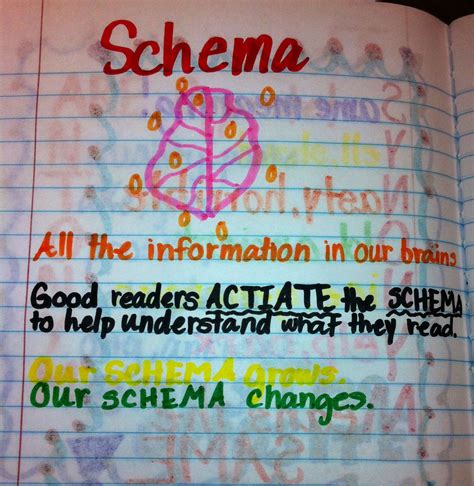 Schema
All the information in our brains
Good readers ACTIATE the SCHEMA
to help understand what they read.
Our SCHEMA grows.
Our SCHEMA changes.